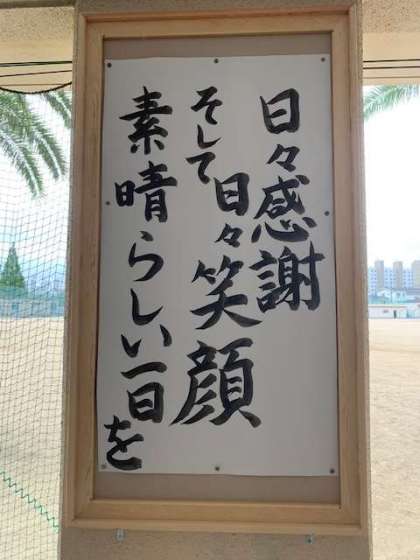 日々感謝
そして日々笑顔
素晴らしい一日を